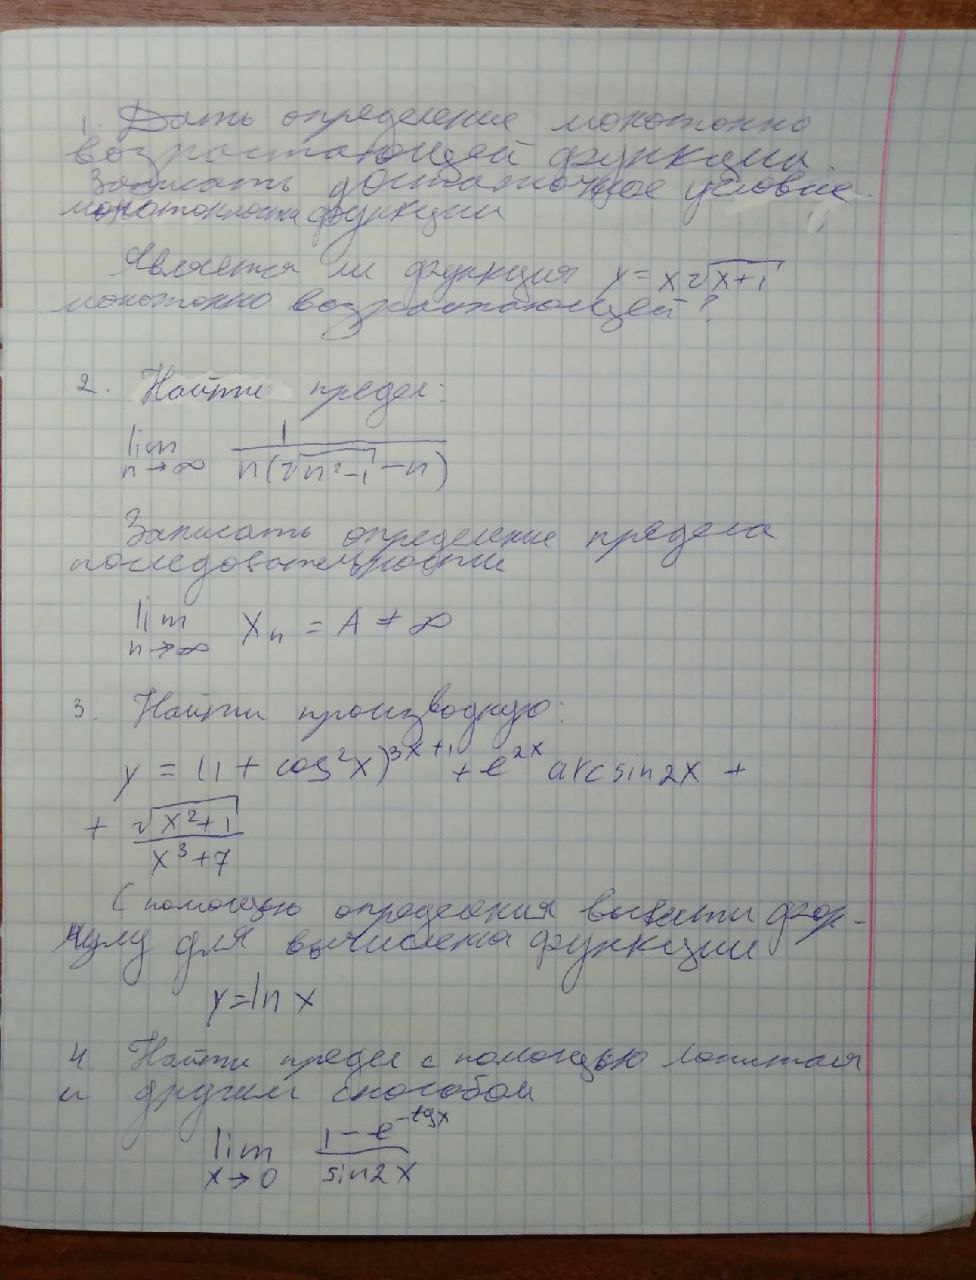 1. Дать определение монотонно
возрастающей функции.
Записать достаточное условие
монотонности функции
Является ли функция y = x√(x+1)
монотонно возрастающей?
2. Найти предел:
lim n→∞ 1/(n(√(n²-1) - n))
Записать определение предела
последовательности
lim n→∞ Xn = A ≠ ∞
3. Найти производную:
y = (1 + cos²x)^(3x+1) + e^(2x) arcsin2x +
+ √(x²+1)/(x³+7)
С помощью определения вывести фор-
мулу для вычисления функции
y=ln x
4 Найти предел с помощью Лопиталя
и другим способом
lim x→0 (1 - e^(-tgx))/sin2x